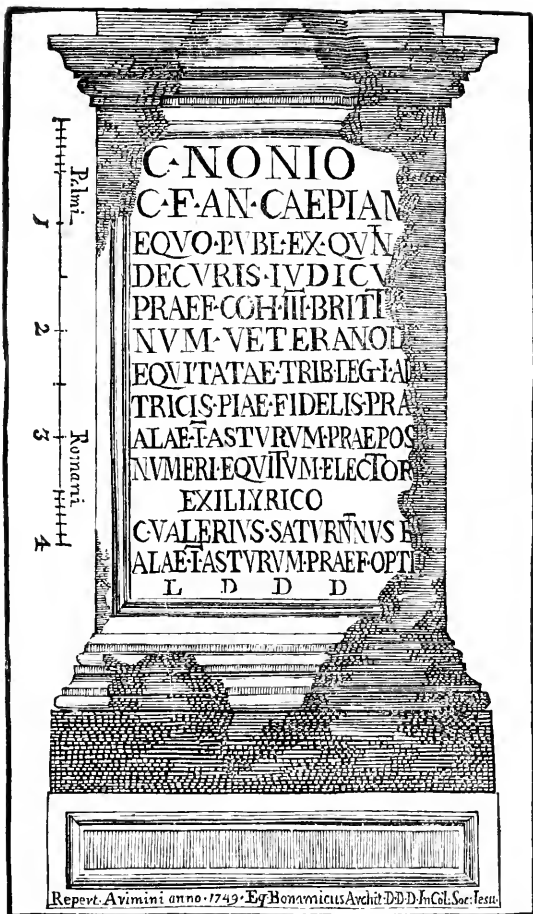 C·NONIO
C·F·AN·CAEPIAN
EQVO·PVBL·EX·QVIN
DECVRIS·IVDICV
PRAEF·COH·III·BRITT
NVM·VETERANO
EQVITATAE·TRIB·LEG·I·AD
TRICIS·PIAE·FIDELIS·PRA
ALAE·I·ASTVRVM·PRAEPOS
NVMERI·EQVITVM·ELECTOR
EXILLYRICO
C·VALERIVS·SATVRNINVS·E
ALAE·I·ASTVRVM·PRAEF·OPTI
L D D D
Palmi
Romani
1
2
3
4
Repert·Arimini anno·1749·Eq·Bonamicus Archit·D·D·D·In Col: Soc: Iesu·